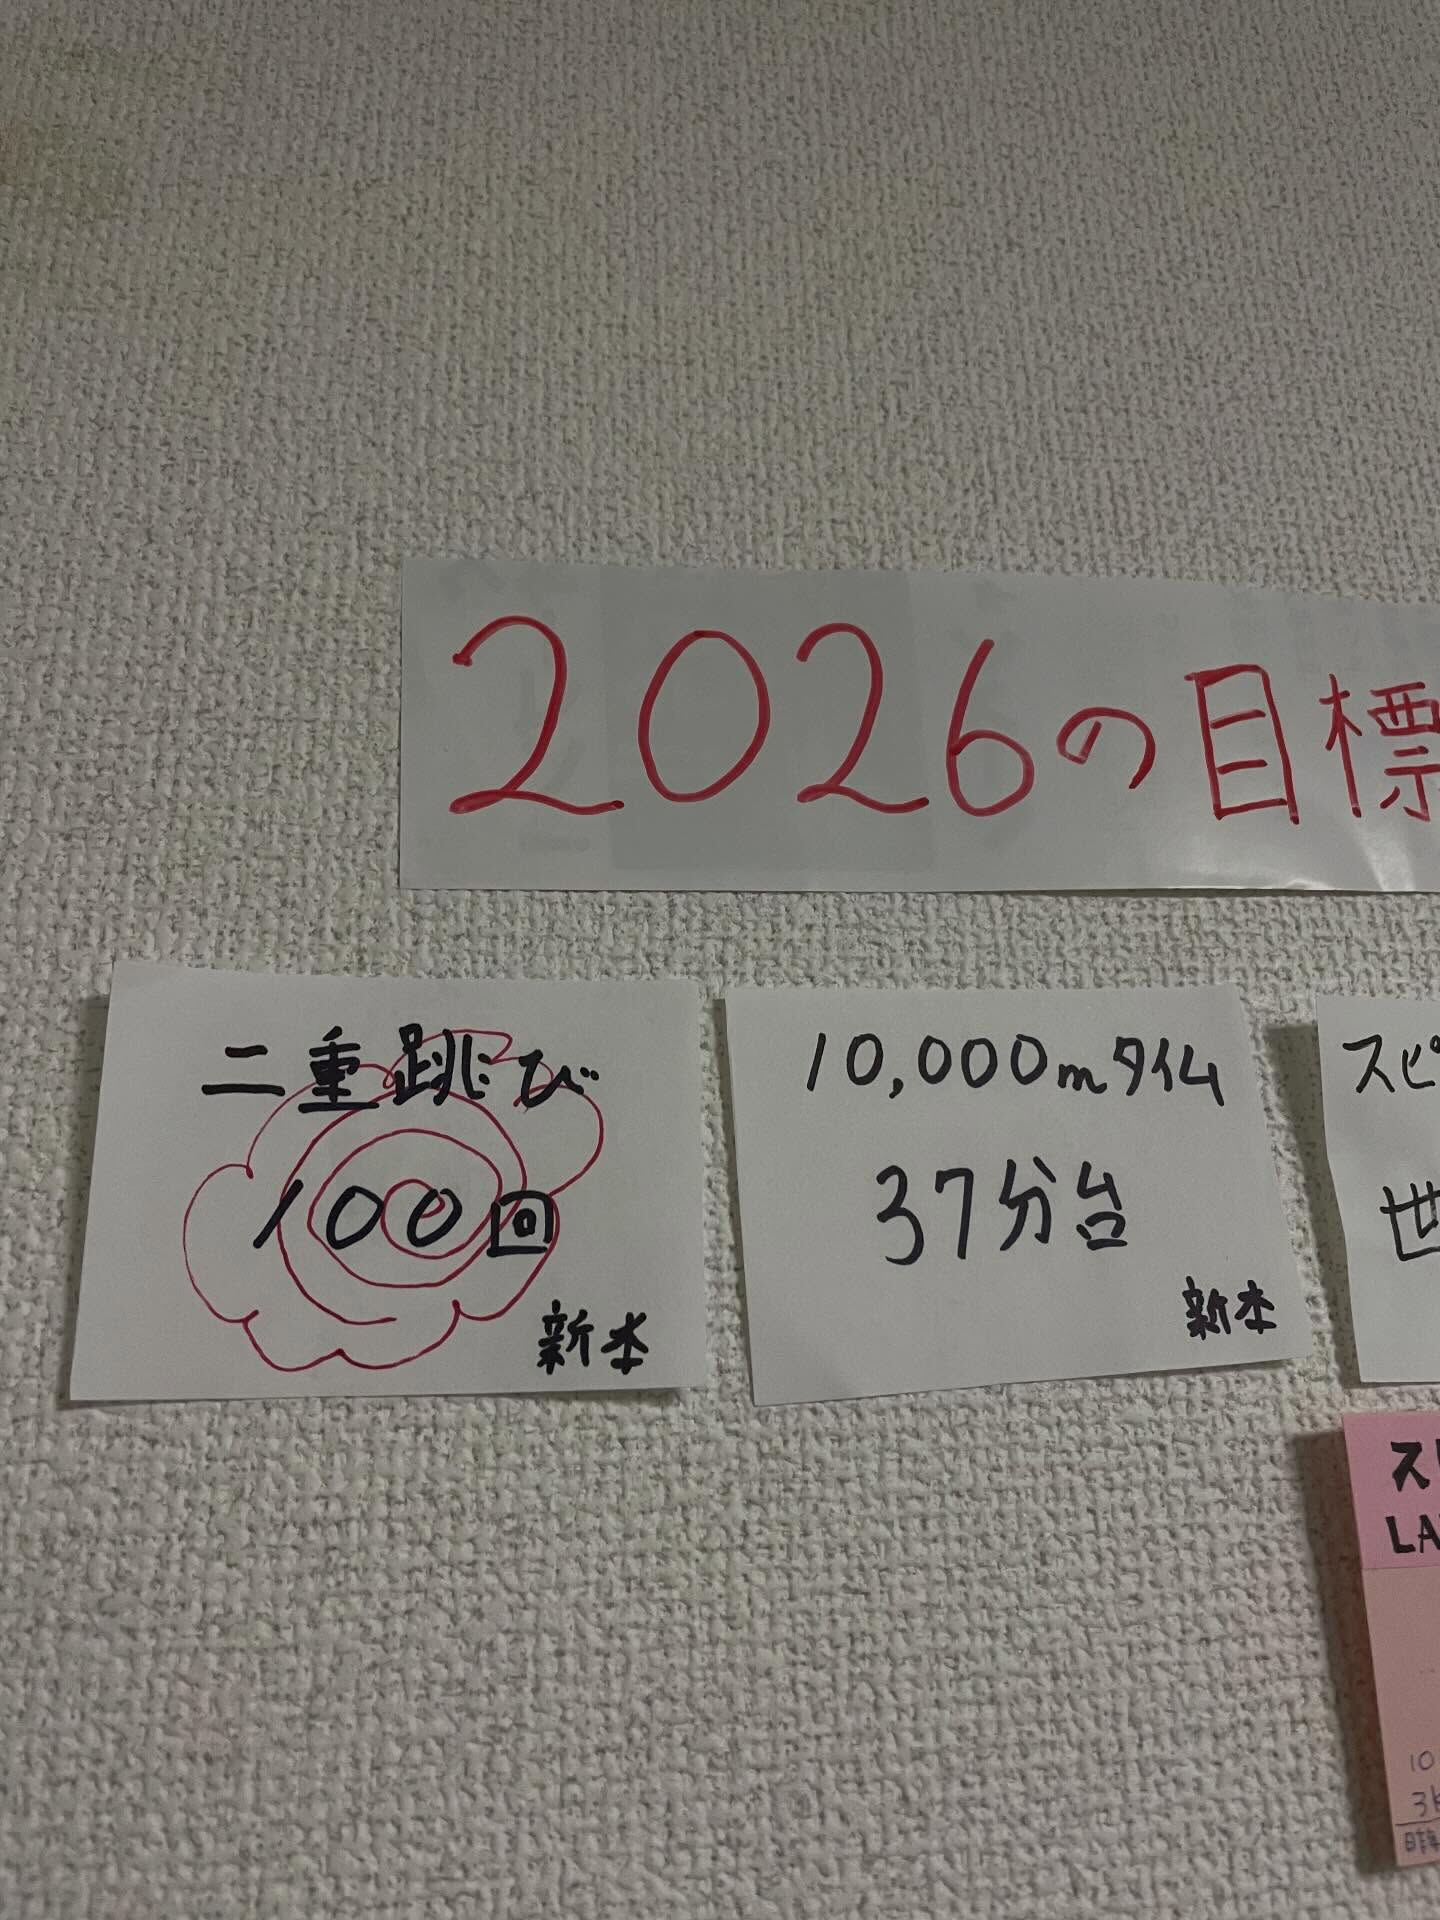 2026の目標
二重跳び
100回
新本
10,000mタイム
37分台
新本
スピ
世
ス
LA
10
3k